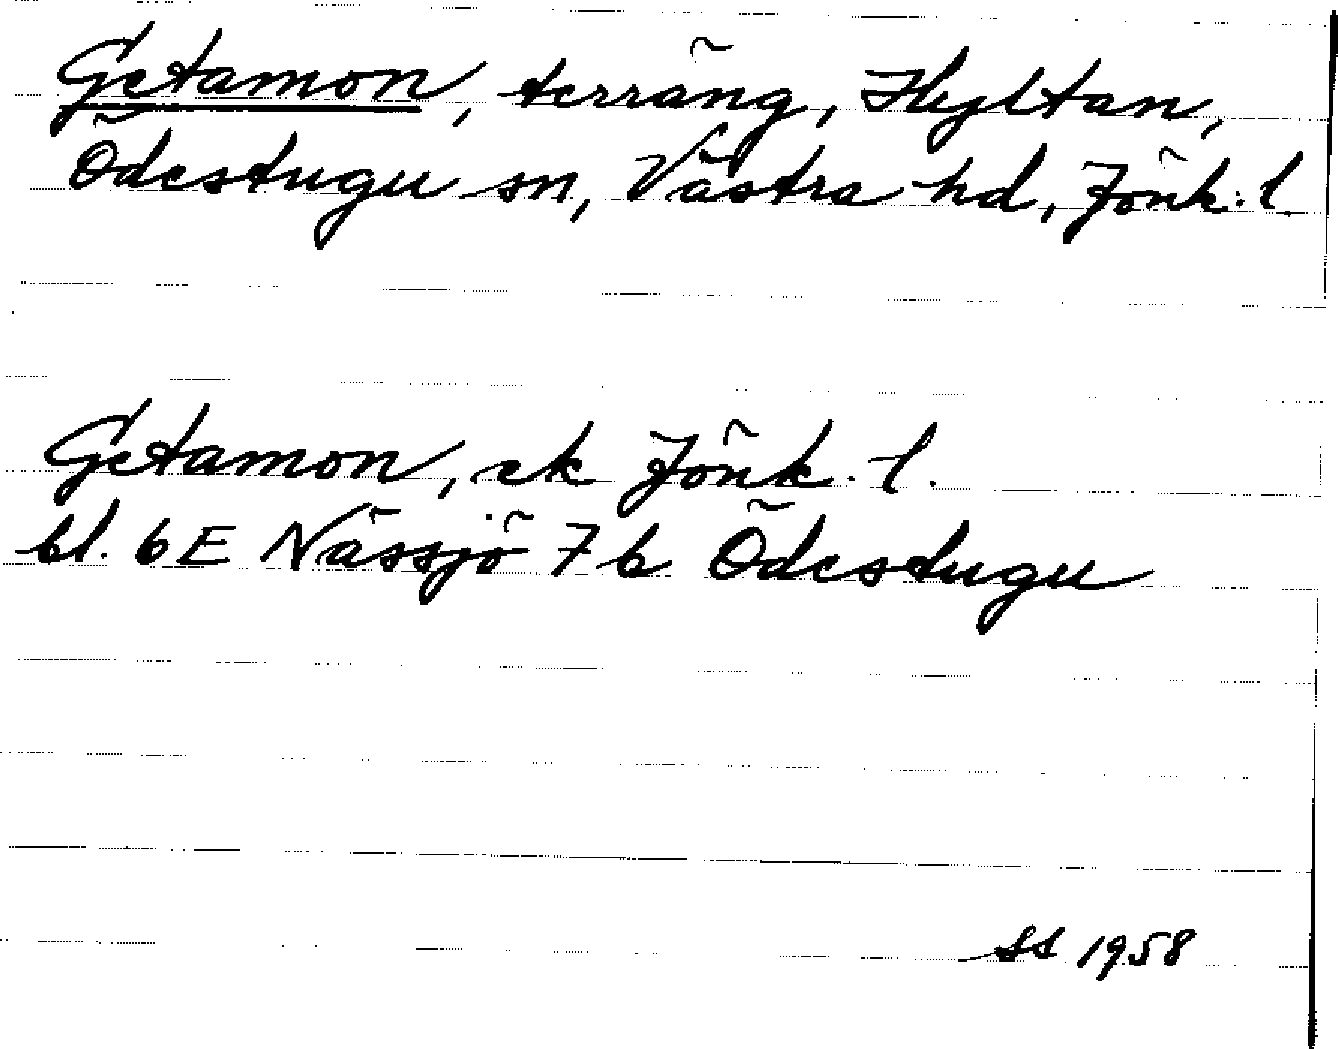 Getamon, terräng, Hyltan,
Ödestugu sn, Västra hd, Jönk. l.
Getamon, ek Jönk. l.
bl. 6E Nässjö 7b Ödestugu
SS 1958